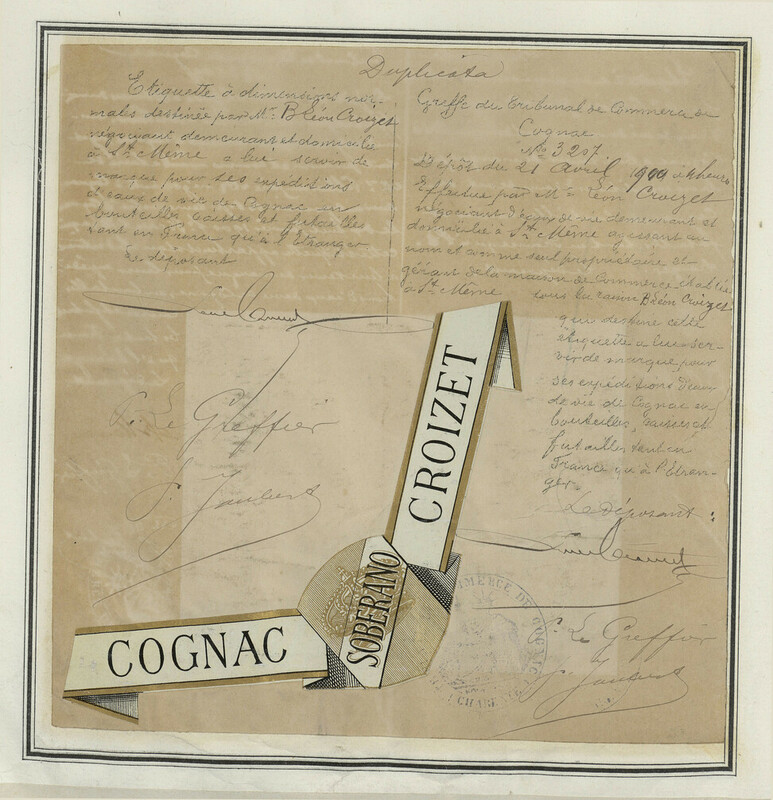 Duplicata
Etiquette à dimensions nor-
males destinée par Mr. B Léon Croizet
négociant demeurant et domicilié
à St Même a lui servir de
marque pour ses expéditions
d'eaux de vie de Cognac en
bouteilles, caisses et futailles
tant en France qu'à l'Etranger.
Le déposant
P. Le Greffier
J. Jaubert
Greffe du Tribunal de Commerce de
Cognac
No 3207
Dépôt du 21 Avril 1900 à 4 heures
Effectué par Mr. Léon Croizet
négociant d'eaux de vie demeurant et
domicilié à St Même agissant au
nom et comme seul propriétaire et
gérant de la maison de Commerce établie
à St Même sous la raison B Léon Croizet
qui destine cette
étiquette a lui ser-
vir de marque pour
ses expéditions d'eaux
de vie de Cognac en
bouteilles, caisses et
futailles tant en
France qu'à l'Etran-
ger.
Le déposant :
P. Le Greffier
J. Jaubert
COGNAC
SOBERANO
CROIZET
COMMERCE DE COGNAC